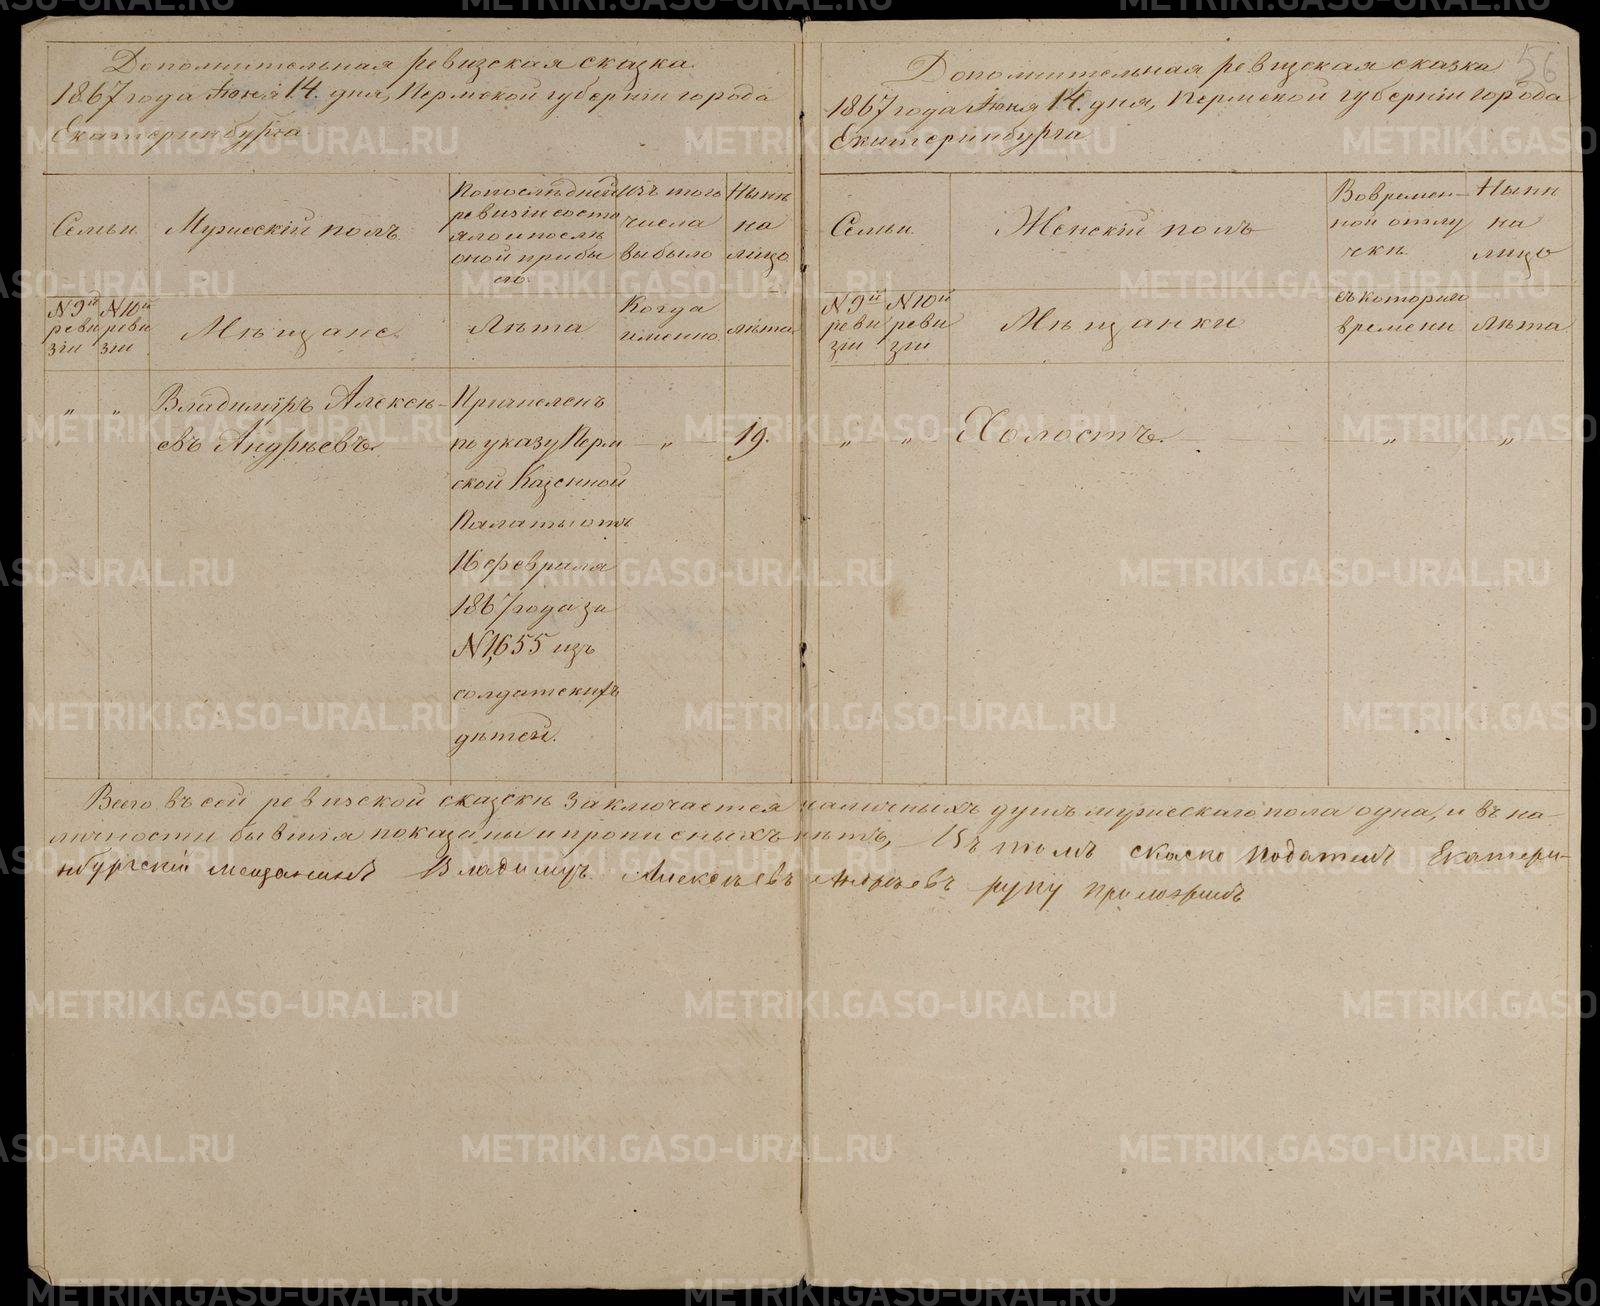 Дополнительная ревизская сказка
1867 года Июня 14. дня, Пермской губернiи города
Екатеринбурга
Семьи
Мужескiй полъ
По послѣдней
ревизiи состо
яло и послѣ
оной прибы
ло
Изъ того
числа
выбыло
Нынѣ
на
лицо
№ 9й
реви
зiи
№ 10й
реви
зiи
Мѣщане.
Лѣта
Когда
именно.
лѣта
„
„
Владимiръ Алексѣ-
евъ Андрѣевъ.
Причисленъ
по указу Перм
ской Казенной
Палаты отъ
16 февраля
1867 года за
№ 1,655 изъ
солдатскихъ
дѣтей.
„
19.
56
Дополнительная ревизская сказка
1867 года Июня 14. дня, Пермской губернiи города
Екатеринбурга
Семьи
Женскiй полъ
Во времен-
ной отлу
чкѣ
Нынѣ
на
лицо
№ 9й
реви
зiи
№ 10й
реви
зiи
Мѣщанки
съ котораго
времени
Лѣта
„
„
Холостъ.
„
„
Всего въ сей ревизской сказкѣ заключается наличныхъ душъ мужескаго пола одна, и въ на-
личности бывшiя показаны и прописныхъ нѣтъ, Къ
скаско подателъ Екатери-
нбургскiй мещанинъ Владимиръ Алексѣевъ Андрѣевъ руку приложилъ
METRIKI.GASO-URAL.RU